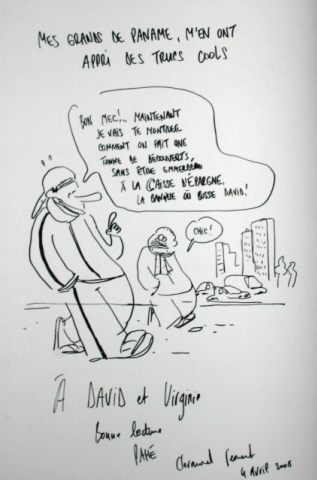 MES GRANDS DE PANAME, M'EN ONT
APPRI DES TRUCS COOLS
BON MEC!.. MAINTENANT
JE VAIS TE MONTRER
COMMENT ON FAIT UNE
TONNE DE DÉCOUVERTS,
SANS ÊTRE EMMERDER
À LA CAISSE D'ÉPARGNE,
LA BANQUE OÙ BOSSE DAVID!
CHIC!
À DAVID et Virginie
Bonne lecture
PAHÉ
4 AVRIL 2008